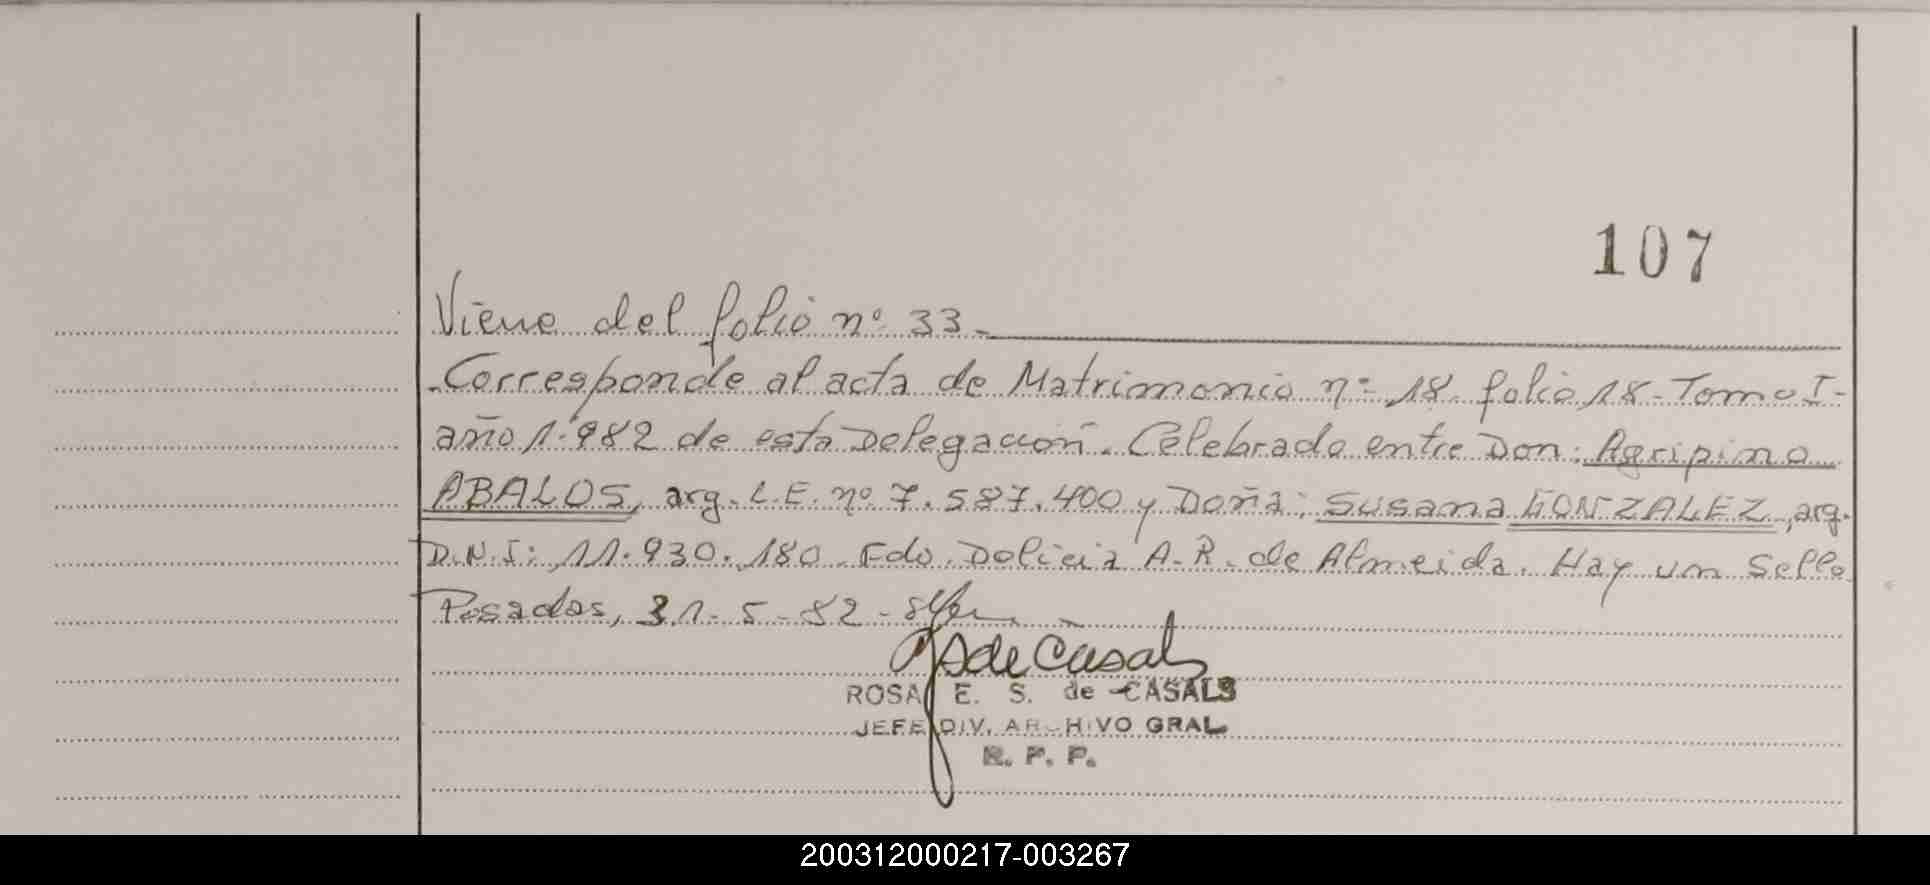 107
Viene del folio nº 33-
Corresponde al acta de Matrimonio nº 18 folio 18- Tomo I-
año 1.982 de esta Delegación. Celebrado entre Don: Agripino
ABALOS, arg. L.E. nº 7.587.400 y Doña: Susana GONZALEZ, arg.
D.N.I: 11.930.180. Fdo. Dolicia A.R. de Almeida. Hay un Sello
Posadas, 31-5-82-
de Casals
ROSA E. S. de CASALS
JEFE DIV. ARCHIVO GRAL
R. P. P.
200312000217-003267